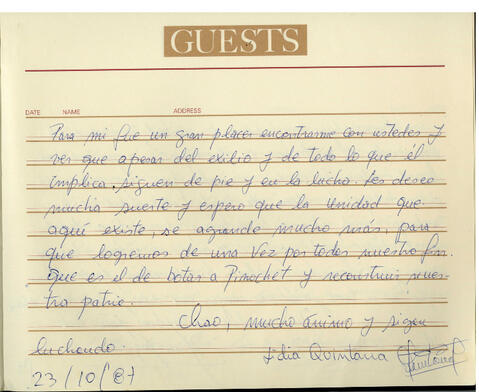 GUESTS
DATE NAME ADDRESS
Para mi fue un gran placer encontrarme con ustedes y
ver que apesar del exilio y de todo lo que él
implica, siguen de pie y en la lucha. Les deseo
mucha suerte y espero que la Unidad que
aquí existe, se agrande mucho más, para
que logremos de una vez por todas nuestro fin.
Que es el de botar a Pinochet y reconstruir nues-
tra patria.
Chao, mucho ánimo y sigan
luchando.
Lidia Quintana
23/10/87